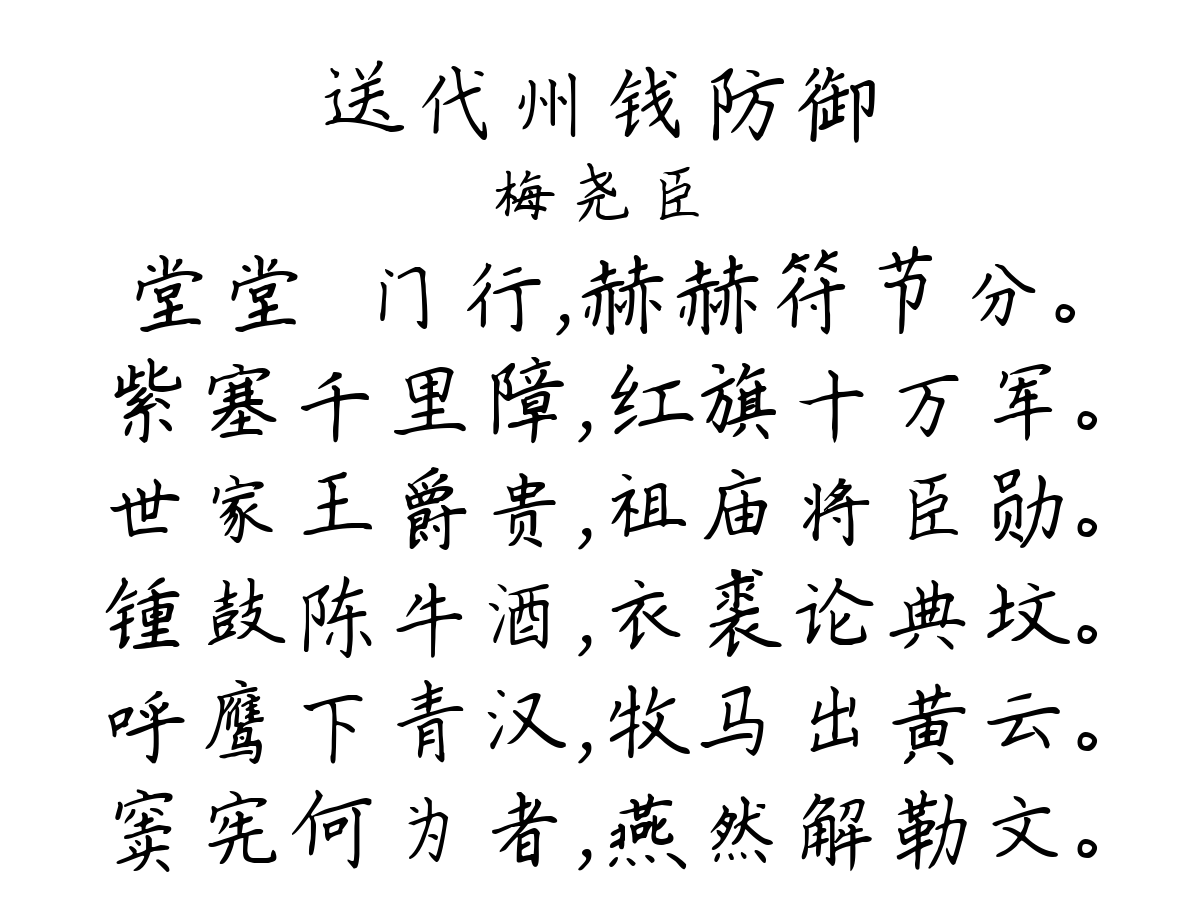 送代州钱防御
梅尧臣
堂堂 门行,赫赫符节分。
紫塞千里障,红旗十万军。
世家王爵贵,祖庙将臣勋。
锺鼓陈牛酒,衣裘论典坟。
呼鹰下青汉,牧马出黄云。
窦宪何为者,燕然解勒文。